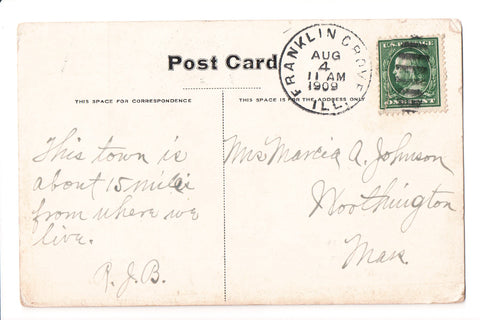 Post Card
FRANKLIN GROVE
AUG
4
11 AM
1909
ILL.
U.S. POSTAGE
ONE CENT
THIS SPACE FOR CORRESPONDENCE
THIS SPACE IS FOR THE ADDRESS ONLY
This town is
about 15 miles
from where we
live.
R. J. B.
Mrs Marcia A. Johnson
Worthington
Mass.